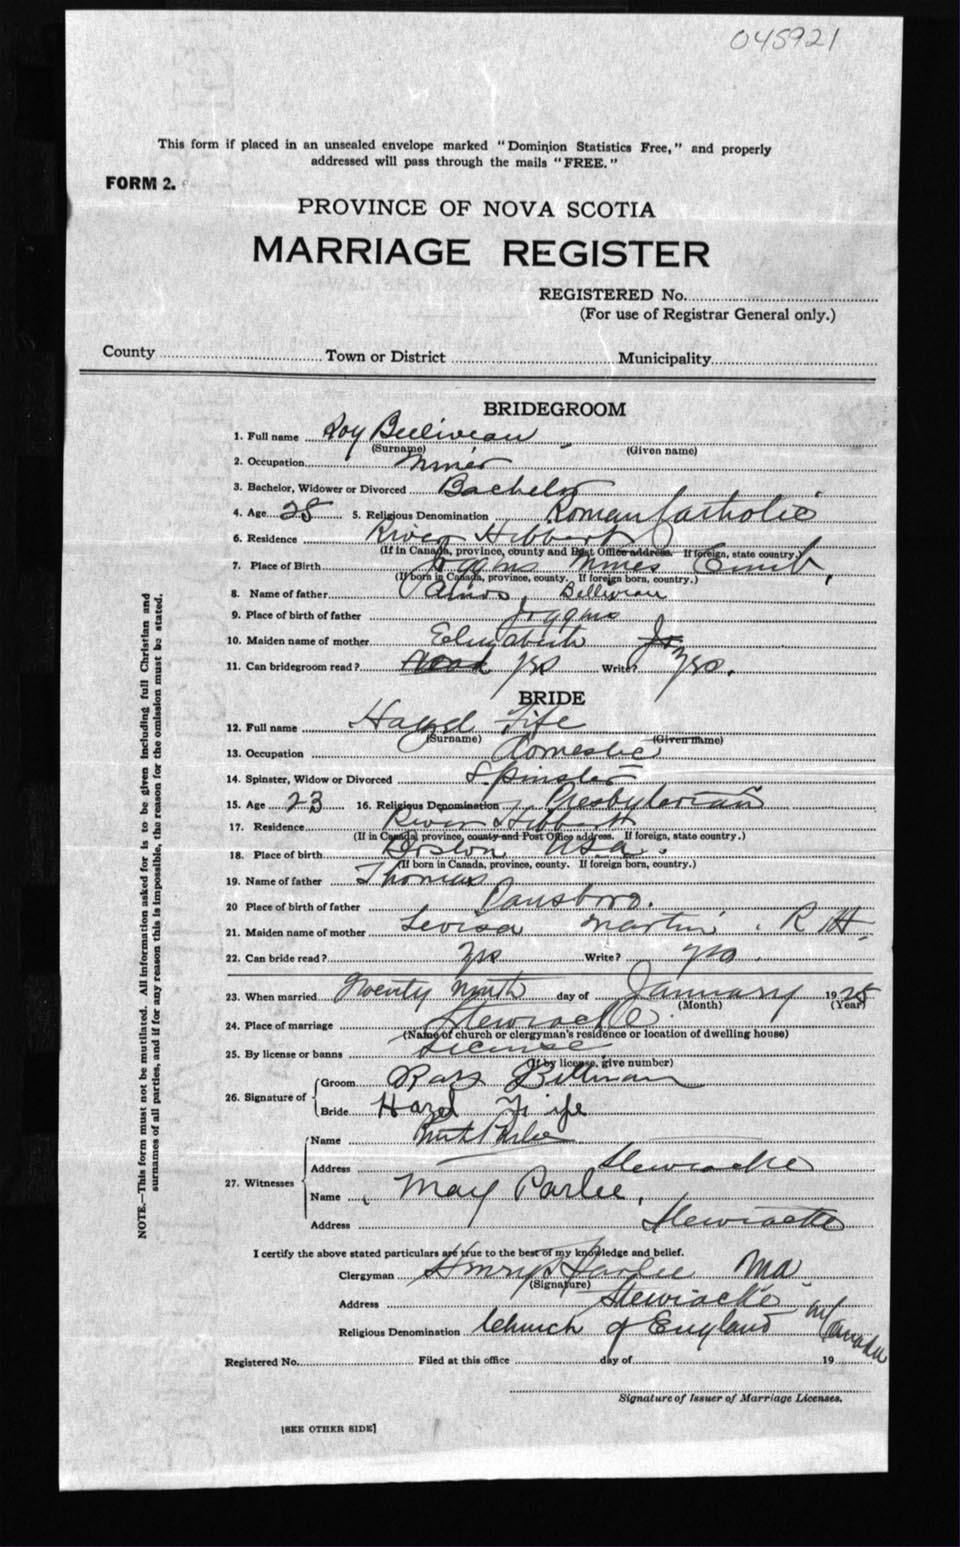 045921
This form if placed in an unsealed envelope marked "Dominion Statistics Free," and properly
addressed will pass through the mails "FREE."
FORM 2.
PROVINCE OF NOVA SCOTIA
MARRIAGE REGISTER
REGISTERED No.
(For use of Registrar General only.)
County Town or District Municipality
BRIDEGROOM
1. Full name Roy Belliveau
(Surname) (Given name)
2. Occupation Miner
3. Bachelor, Widower or Divorced Bachelor
4. Age 28 5. Religious Denomination Roman Catholic
6. Residence River Hibbert
(If in Canada, province, county and Post Office address. If foreign, state country.)
7. Place of Birth Joggins Mines Cumb,
(If born in Canada, province, county. If foreign born, country.)
8. Name of father Belliveau
9. Place of birth of father Joggins
10. Maiden name of mother Elizabeth
11. Can bridegroom read? yes Write? yes.
BRIDE
12. Full name Hazel Fife
(Surname) (Given name)
13. Occupation domestic
14. Spinster, Widow or Divorced Spinster
15. Age 23 16. Religious Denomination Presbyterian
17. Residence River Hibbert
(If in Canada province, county and Post Office address. If foreign, state country.)
18. Place of birth Boston USA.
(If born in Canada, province, county. If foreign born, country.)
19. Name of father Thomas
20 Place of birth of father Parsboro.
21. Maiden name of mother Levisa Martin. R H.
22. Can bride read? yes Write? yes.
23. When married Twenty Ninth day of January 1925
(Month) (Year)
24. Place of marriage Stewiacke.
(Name of church or clergyman's residence or location of dwelling house)
25. By license or banns License
(If by license, give number)
26. Signature of Groom
Bride Hazel Fife
27. Witnesses Name Parlee
Address Stewiacke
Name May Parlee,
Address Stewiacke
I certify the above stated particulars are true to the best of my knowledge and belief.
Clergyman Parlee MA
(Signature)
Address Stewiacke
Religious Denomination Church of England in Canada
Registered No. Filed at this office day of 19
Signature of Issuer of Marriage Licenses.
[SEE OTHER SIDE]
NOTE.—This form must not be mutilated. All information asked for is to be given including full Christian and
surnames of all parties, and if for any reason this is impossible, the reason for the omission must be stated.